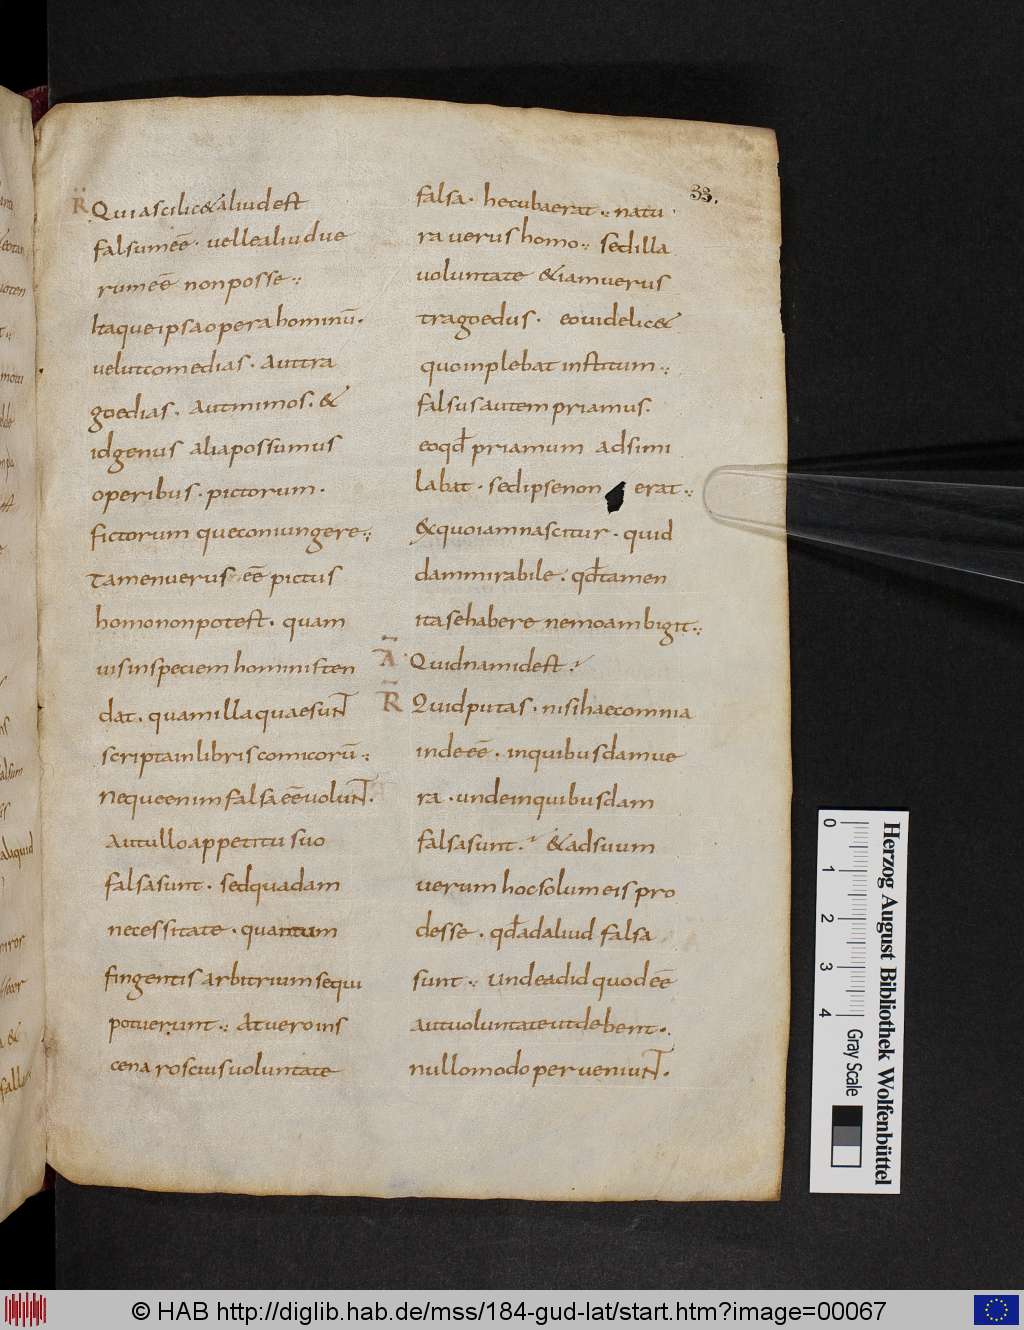 33.
R̈ Quia scilic& aliud est
falsum eē · uelle aliud ue
rum eē non posse ·:
Itaque ipsa opera hominū ·
uelut comedias · Aut tra
goedias · Aut mimos · &
id genus alia possumus
operibus · pictorum ·
fictorum que coniungere ·:
Tamen uerus eē pictus
homo non potest · quam
uis in speciem hominis ten
dat · quam illa quae sunT
scripta in libris comicorū ·:
Neque enim falsa eē uolunT ·
Aut ullo appetitu suo
falsa sunt · sed quadam
necessitate · quantum
fingentis arbitrium sequi
potuerunt ·: At uero in s
cena roscius uoluntate
falsa · hecuba erat ·: natu
ra uerus homo ·: sed illa
uoluntate & iam uerus
tragoedus · eo uidelic&
quo inplebat institutum ·:
falsus autem priamus ·
eo qđ priamum adsimi
labat · sed ipse non erat ·:
& quo iam nascitur · quid
dam mirabile · qđ tamen
ita se habere nemo ambigit ·:
Ā Quidnam id est ·
R̄ Quid putas · nisi haec omnia
inde eē · in quibusdam ue
ra · unde in quibusdam
falsa sunt · & ad suum
uerum hoc solum eis pro
desse · qđ ad aliud falsa
sunt ·: unde ad id quod eē
aut uolunt aut debent ·
nullo modo perueniunT ·
0 1 2 3 4
Gray Scale
Herzog August Bibliothek Wolfenbüttel
© HAB http://diglib.hab.de/mss/184-gud-lat/start.htm?image=00067